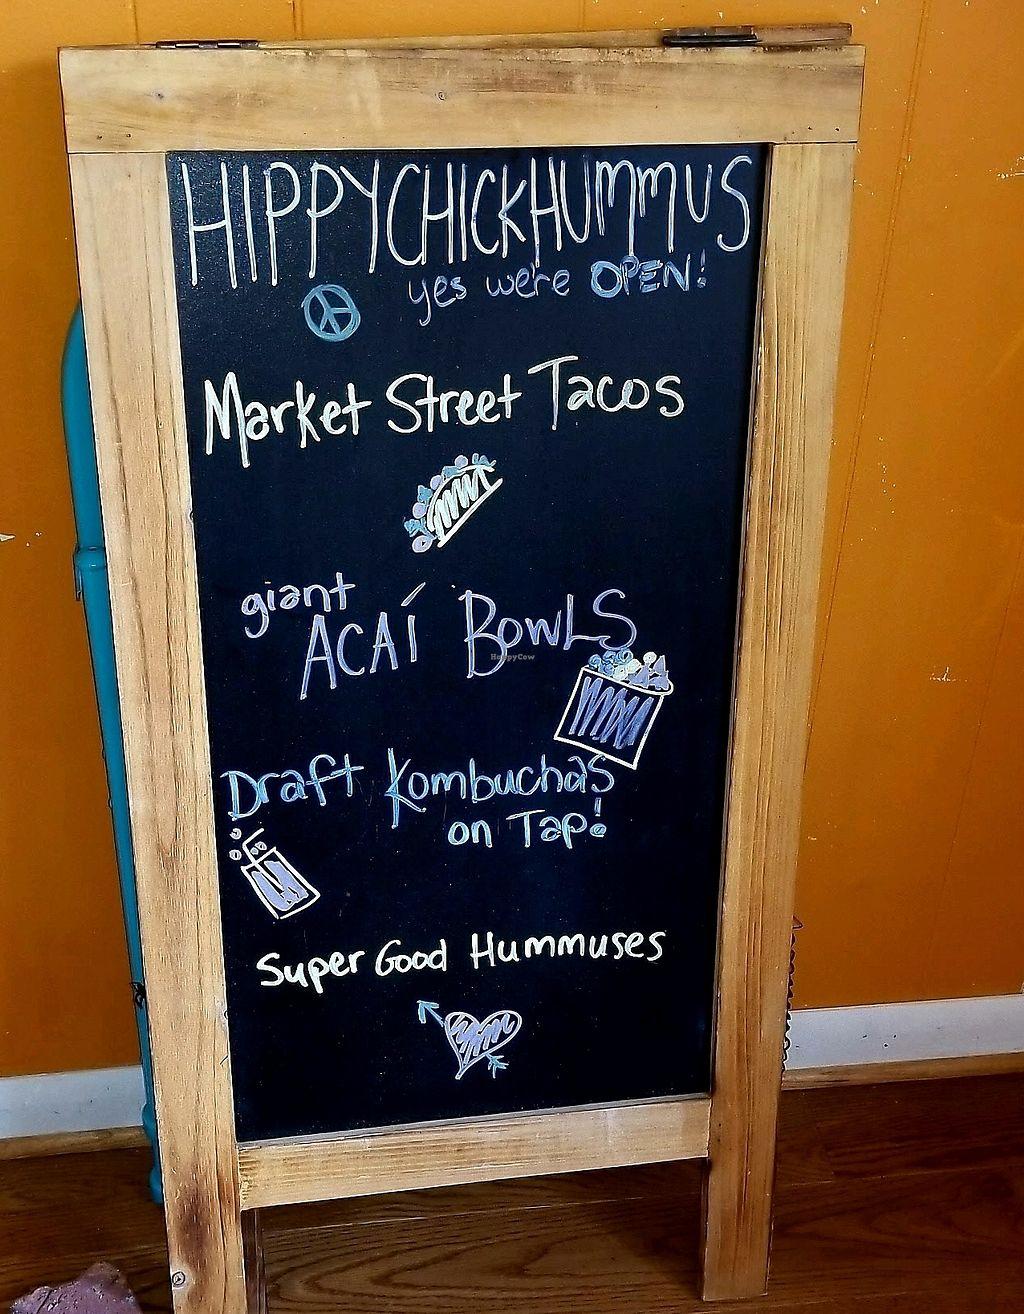 HIPPYCHICKHUMMUS
yes we're OPEN!
Market Street Tacos
giant
ACAÍ BOWLS
HappyCow
Draft Kombuchas
on Tap!
Super Good Hummuses